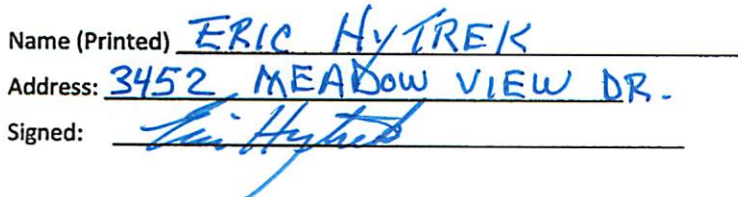 Name (Printed) ERIC HyTREK
Address: 3452 MEADOW VIEW DR.
Signed: Eric Hytrek